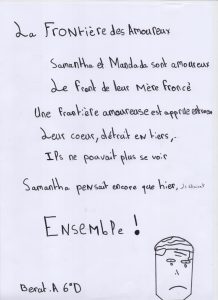 La Frontière des Amoureux
Samantha et Mandada sont amoureux
Le front de leur Mère froncé
Une frontière amoureuse est
Leur coeur, détruit en tiers,..
Ils ne pouvait plus se voir
Samantha pensait encore que hier,
Ensemble !
Berat.A 6°D